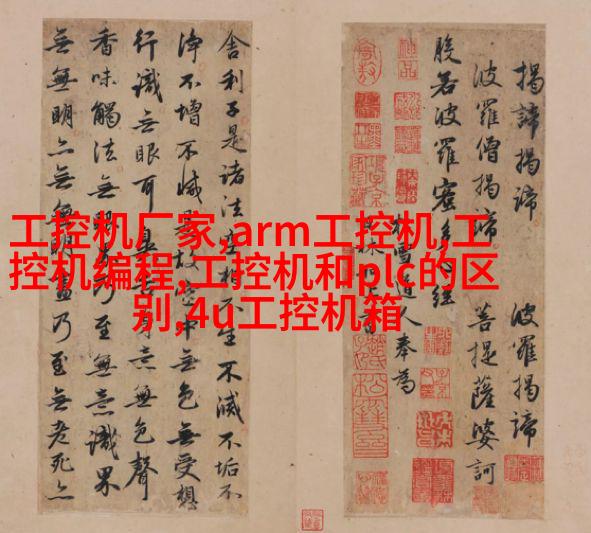 工控机厂家,arm工控机,工
控机编程,工控机和plc的区
别,4u工控机箱
揭諦揭諦 波羅揭諦
波羅僧揭諦 菩提薩婆訶
般若波羅蜜多心經
雪道人奉為
舍利子是諸法空相不生不滅不垢不
淨不增不減是故空中無色無受想
行識无眼耳鼻舌身意無色聲
香味觸法無眼界乃至無意識界
無無明亦無無明盡乃至無老死亦